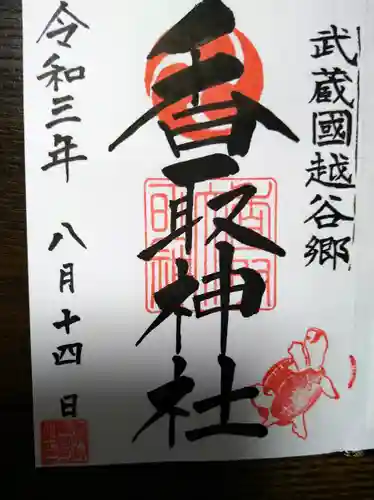 武蔵國越谷郷
香取神社
令和三年 八月十四日